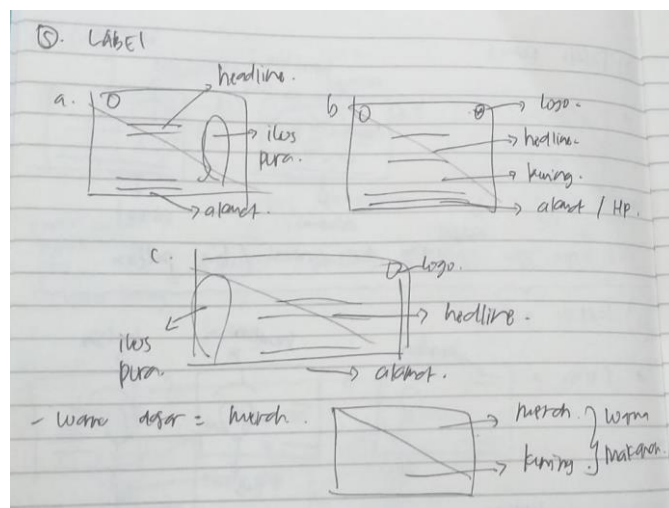 ⑤. LABEL
a.
headline.
ilus
pura.
alamat.
b
logo.
hedline.
kuning.
alamat / HP.
c.
logo.
hedline.
ilus
pura.
alamat.
- warna dasar = merah.
merah.
kuning.
warna
makanan.